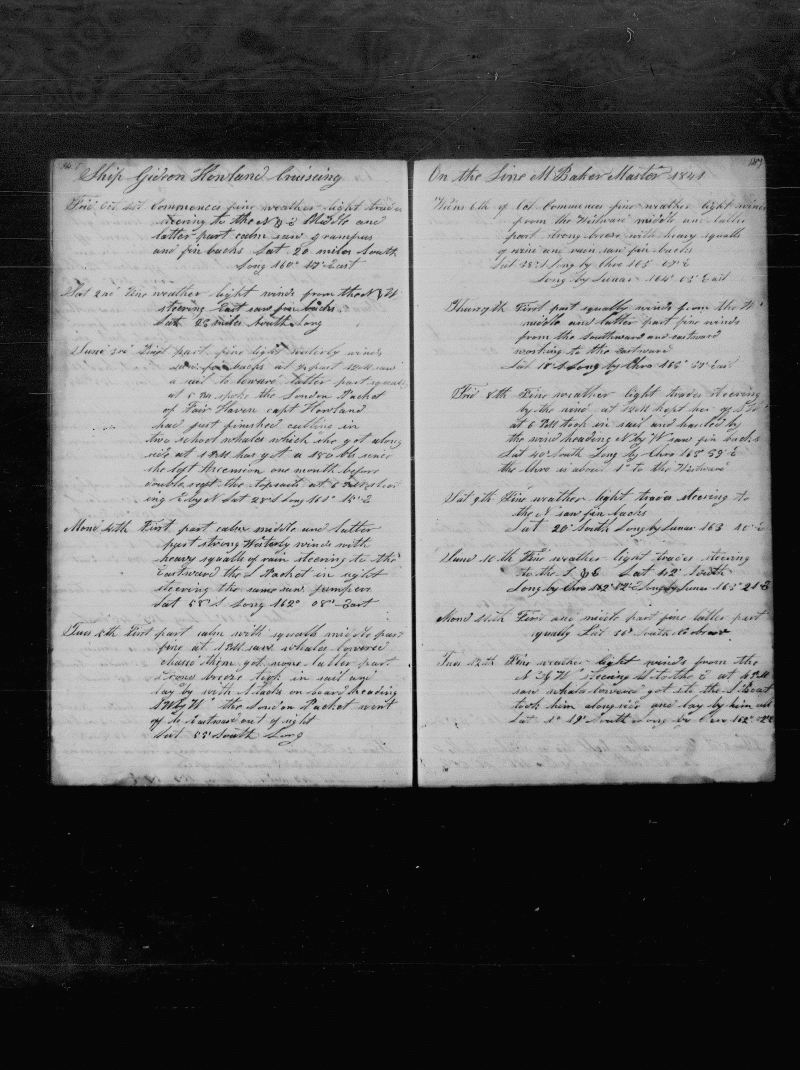 Ship Gideon Howland Cruising
Frid Oct 1st Commences fine weather light trades
steering to the N & E Middle and
latter part calm saw grampus
and fin backs Lat 20 miles South
Long 160° 47' East
Sat 2nd Fine weather light winds from the N & W
steering East saw fin backs
Lat 28 miles South Long
Sund 3rd First part fine light westerly winds
saw fin backs at part saw
a sail to leward latter part squally
at 5 PM spoke the London Packet
of Fair Haven capt Howland
had just finished cutting in
two school whales which she got along
side at 1 PM has got 180 bbls since
she left Ascension one month before
double reeft the topsails at 6 PM steer
ing E by N Lat 28' S Long 161° 15' E
Mond 4th First part calm middle and latter
part strong Westerly winds with
heavy squalls of rain steering to the
Eastward the L Packet in sight
steering the same saw jumpers
Lat 58' S Long 162° 08' East
Tues 5th First part calm with squalls middle part
fine at 1 PM saw whales lowered
chased them got none latter part
strong breeze took in sail and
lay by with S tacks on board heading
S W by W the London Packet went
of to Eastward out of sight
Lat 53' South Long
187
On the Line M Baker Master 1841
Wedns 6th of Oct Commences fine weather light winds
from the Westward middle and latter
part strong breeze with heavy squalls
of wind and rain saw fin backs
Lat 38' S Long by Chro 163° 07' E
Long by Lunar 164° 05' East
Thurs 7th First part squally winds from the W
middle and latter part fine winds
from the southward and eastward
working to the eastward
Lat 18' S Long by Chro 163° 57' East
Frid 8th Fine weather light trades steering
by the wind at kept her of
at 6 PM took in sail and hauled by
the wind heading N by W saw fin backs
Lat 40' South Long by Chro 163° 59' E
the Chro is about 1° to the Westward
Sat 9th Fine weather light trades steering to
the N saw fin backs
Lat 20' South Long by Lunar 163 40' E
Sund 10th Fine weather light trades steering
to the S & E Lat 42' South
Long by Chro 162° 52' E Long by Lunar 163° 21' E
Mond 11th First and middle part fine latter part
squally Lat South
Tues 12th Fine weather light winds from the
N & W steering to the E at PM
saw whales lowered got the Boat
took him alongside and lay by him
Lat 1° 19' South Long by Chro 162°